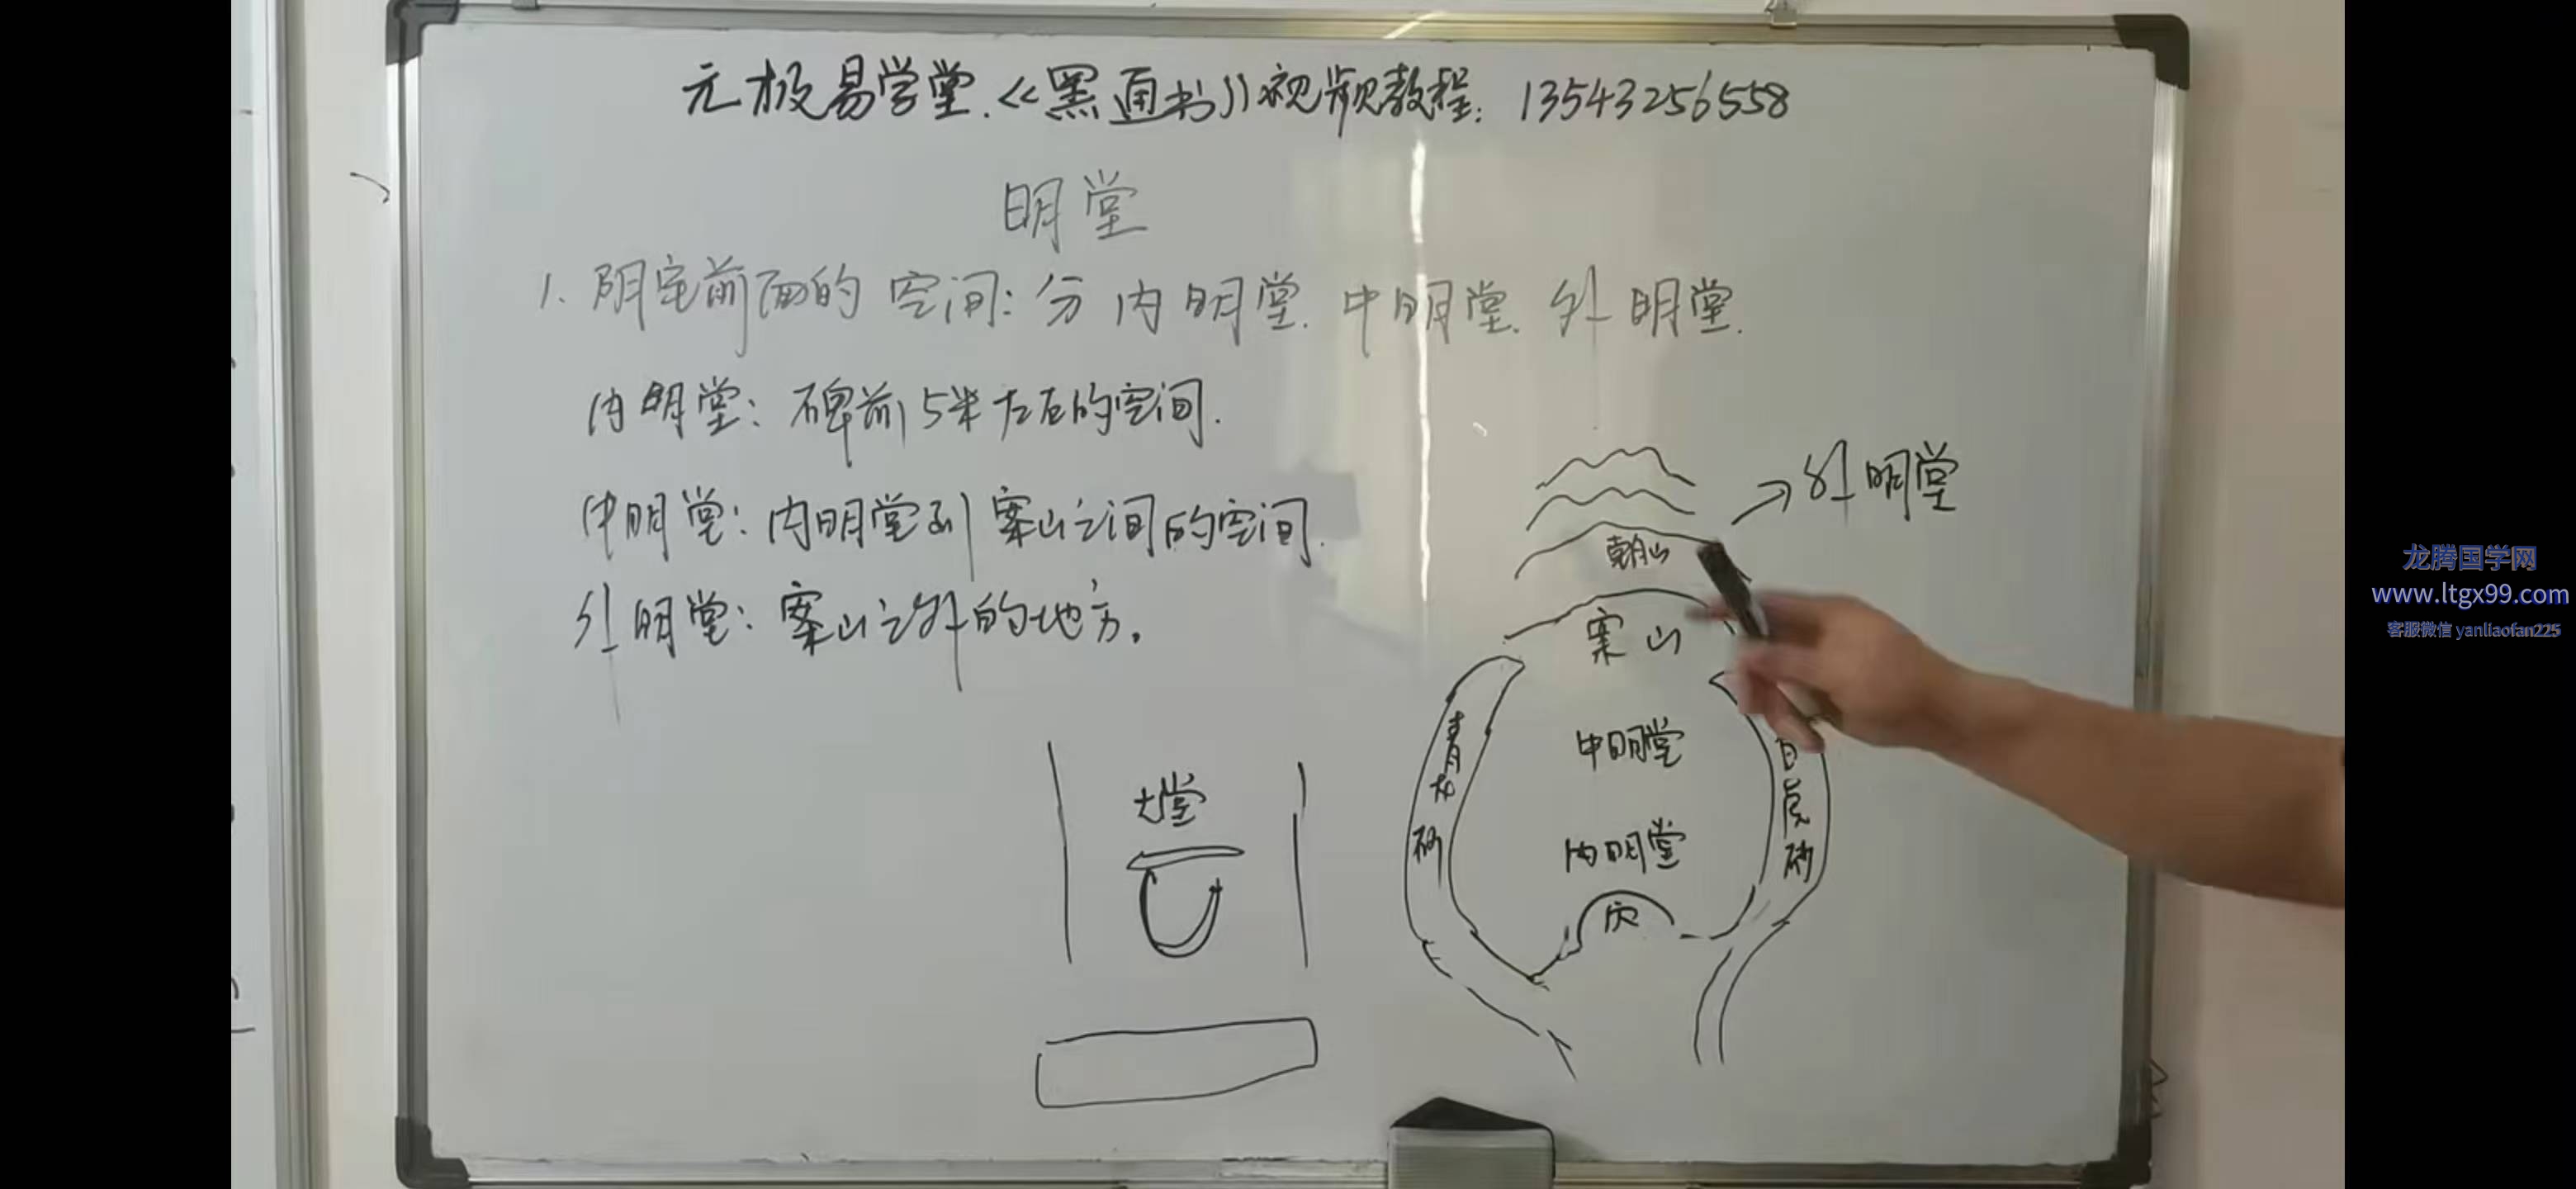 元极易学堂.《黑通书》视频教程: 13543256558
明堂
1. 阴宅前面的空间: 分内明堂. 中明堂. 外明堂.
内明堂: 碑前5米左右的空间.
中明堂: 内明堂到案山之间的空间.
外明堂: 案山之外的地方.
→外明堂
朝山
案山
中明堂
内明堂
穴
青龙砂
白虎砂
大堂
龙腾国学网
www.ltgx99.com
客服微信 yanliaofan225